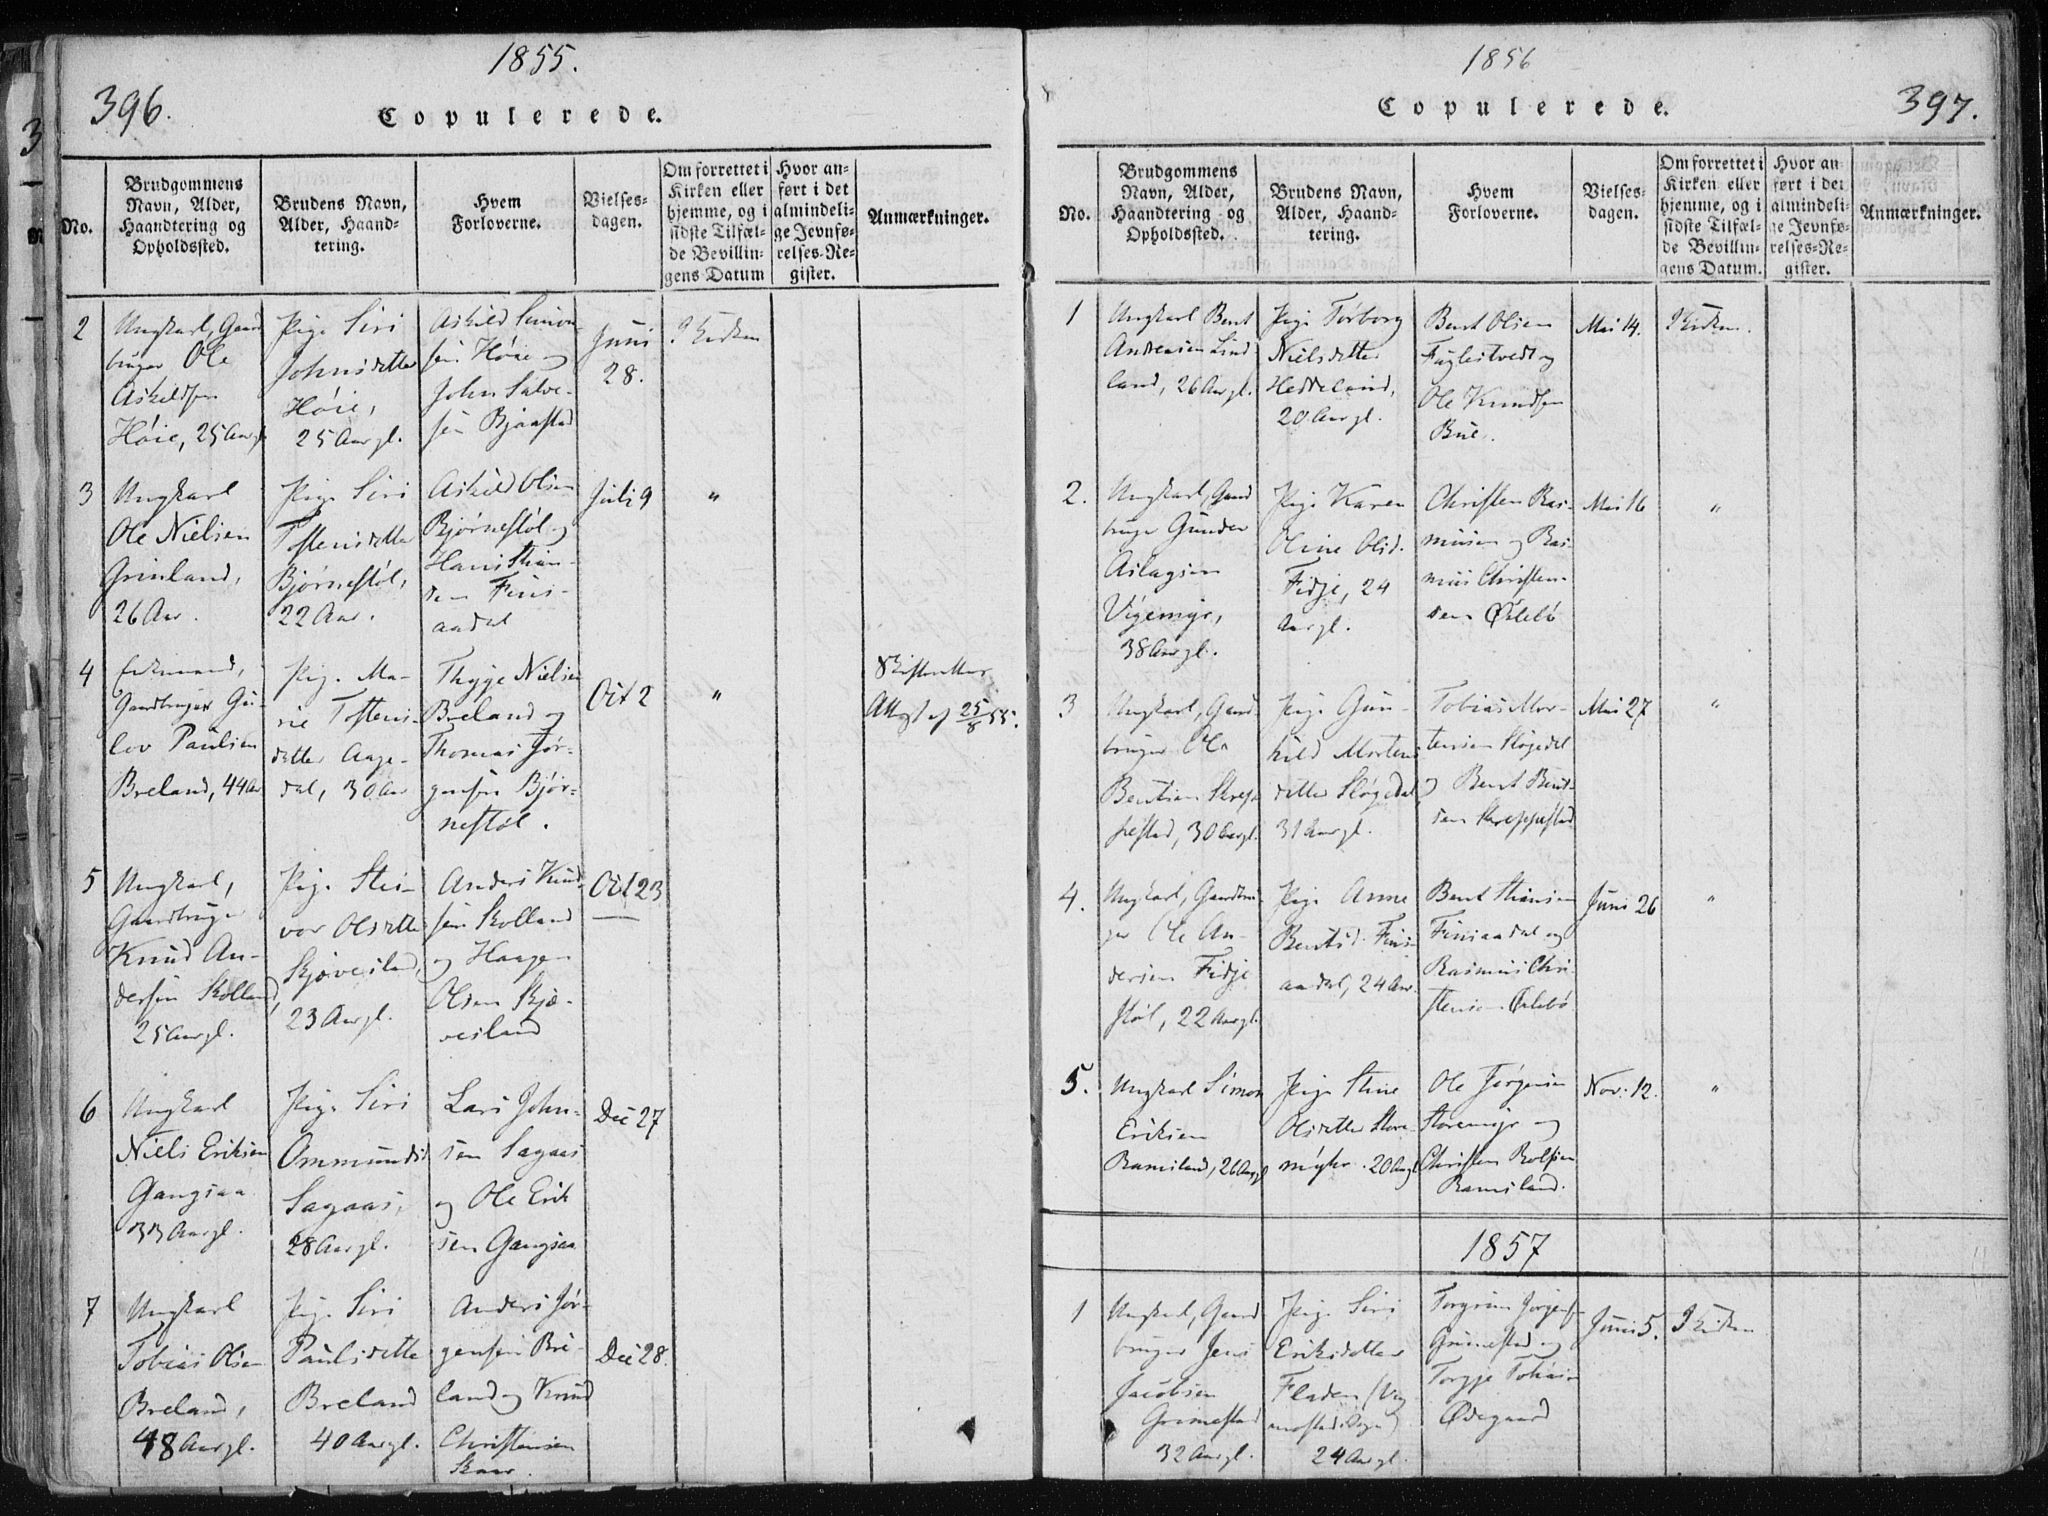 1855.
396.
Copulerede.
No.
Brudgommens Navn, Alder, Haandtering og Opholdssted.
Brudens Navn, Alder, Haandtering.
Hvem Forloverne.
Vielsesdagen.
Om forrettet i Kirken eller hjemme, og i sidste Tilfælde Bevillingens Datum
Hvor anført i det almindelige Jevnførelses-Register.
Anmærkninger.
2
Ungkarl, Gaard
bruger Ole
Askildsen
Høie, 25 Aar gl.
Pige Siri
Johnsdatter
Høie,
25 Aar gl.
Askild Simon-
sen Høie og
John Salve-
sen Bjaastad
Juni
28.
I Kirken
3
Ungkarl
Ole Nielsen
Grinland,
26 Aar.
Pige Siri
Tostensdatter
Bjørnestøl,
22 Aar.
Askild Olsen
Bjørnestøl og
Hans Stian-
sen Fins-
aadal
Juli 9
"
4
Enkemand,
Gaardbruger Gu-
lov Paulsen
Breland, 44 Aar
Pige Ma-
rie Tostens-
datter Aage-
dal, 30 Aar
Thygge Nielsen
Breland og
Thomas Jør-
gensen Bjør-
nestøl.
Oct 2
"
Skifteretter
Attest af 25/8 55.
5
Ungkarl,
Gaardbruger
Knud An-
dersen Skolland,
25 Aar gl.
Pige Stei-
vor Olsdatter
Skjævesland,
23 Aar gl.
Anders Knud-
sen Skolland
og Haagen
Olsen Skjæ-
vesland
Oct 23
6
Ungkarl
Niels Eriksen
Gangsaa
33 Aar gl.
Pige Siri
Ommundsd.
Sagaas,
28 Aar gl.
Lars John-
sen Sagaas
og Ole Erik
sen Gangsaa
Dec 27
7
Ungkarl
Tobias Olsen
Breland,
48 Aar gl.
Pige Siri
Paulsdatter
Breland
40 Aar gl.
Anders Jør-
gensen Bre-
land og Knud
Christensen
Skaar.
Dec 28.
1856
Copulerede.
397.
No.
Brudgommens Navn, Alder, Haandtering og Opholdssted.
Brudens Navn, Alder, Haandtering.
Hvem Forloverne.
Vielsesdagen.
Om forrettet i Kirken eller hjemme, og i sidste Tilfælde Bevillingens Datum.
Hvor anført i det almindelige Jevnførelses-Register.
Anmærkninger.
1
Ungkarl Bent
Andersen Lind
land, 26 Aar gl.
Pige Torborg
Nielsdatter
Heddeland,
20 Aar gl.
Bent Olsen
Fuglestvedt og
Ole Knudsen
Bue.
Mai 14.
I Kirken.
2.
Ungkarl, Gaard
bruger Gunder
Aslagsen
Vigemyr,
38 Aar gl.
Pige Karen
Oline Olsd.
Fidje, 24
Aar gl.
Christen Ras-
musen og Ras-
mus Christen-
sen Øslebø
Mai 16
"
3
Ungkarl, Gaard-
bruger Ole
Bentsen Skrep-
pestad, 30 Aar gl.
Pige Gun-
hild Mortens
datter Sløgedal
31 Aar gl.
Tobias Mor-
tensen Sløgedal
og Bent Bent-
sen Skreppestad
Mai 27
"
4.
Ungkarl, Gaardbru-
ger Ole An-
dersen Fidje
støl, 22 Aar gl.
Pige Anne
Bentsd. Fins-
aadal, 24 Aar.
Bent Stiansen
Finsaadal og
Rasmus Chri-
stensen Øslebø
Juni 26
"
5.
Ungkarl Simon
Eriksen
Ramsland, 26 Aar gl
Pige Stine
Olsdatter Store-
myhr. 20 Aar gl
Ole Jørgensen
Storemyr og
Christen Rolfsen
Ramsland.
Nov. 12.
"
1857
1
Ungkarl, Gaard
bruger Jens
Jacobsen
Grimestad
32 Aar gl.
Pige Siri
Eriksdatter
Fladen (Vig
mostad Sogn)
24 Aar gl.
Torgrim Jørgens.
Grimestad og
Torgje Tobias
Ødegaard
Juni 5.
I Kirken